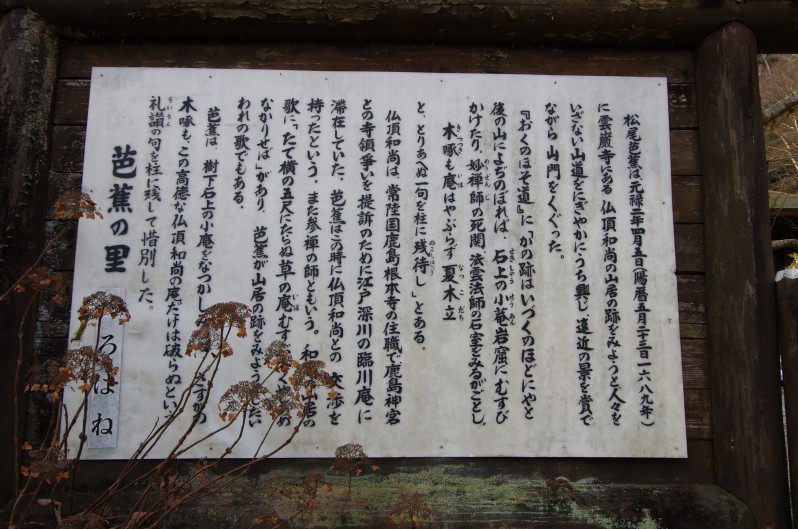 松尾芭蕉は元禄二年四月五日(陽暦五月二十三日一六八九年)
に雲巌寺にある仏頂和尚の山居の跡をみようと人々を
いざない山道をにぎやかにうち興じ、遠近の景を賞で
ながら山門をくぐった。
『おくのほそ道』に「かの跡はいづくのほどにやと
後の山によぢのぼれば、石上の小菴岩窟にむすび
かけたり。妙禅師の死関、法雲法師の石室をみるがごとし。
木啄も庵はやぶらず夏木立
と、とりあへぬ一句を柱に残待し」とある。
仏頂和尚は、常陸国鹿島根本寺の住職で鹿島神宮
との寺領争いを提訴のために江戸深川の臨川庵に
滞在していた。芭蕉はこの時に仏頂和尚との交渉を
持ったという。また参禅の師ともいう。和
の山居の
歌に、「たて横の五尺にたらぬ草の庵むす
なかりせば」があり、芭蕉が山居の跡をみよう
たい
われの歌でもある。
芭蕉は、樹下石上の小庵をなつかし
さすがの
木啄も、この高徳な仏頂和尚の庵だけは破らぬとい
礼讃の句を柱に残して惜別した。
芭蕉の里
ろばね